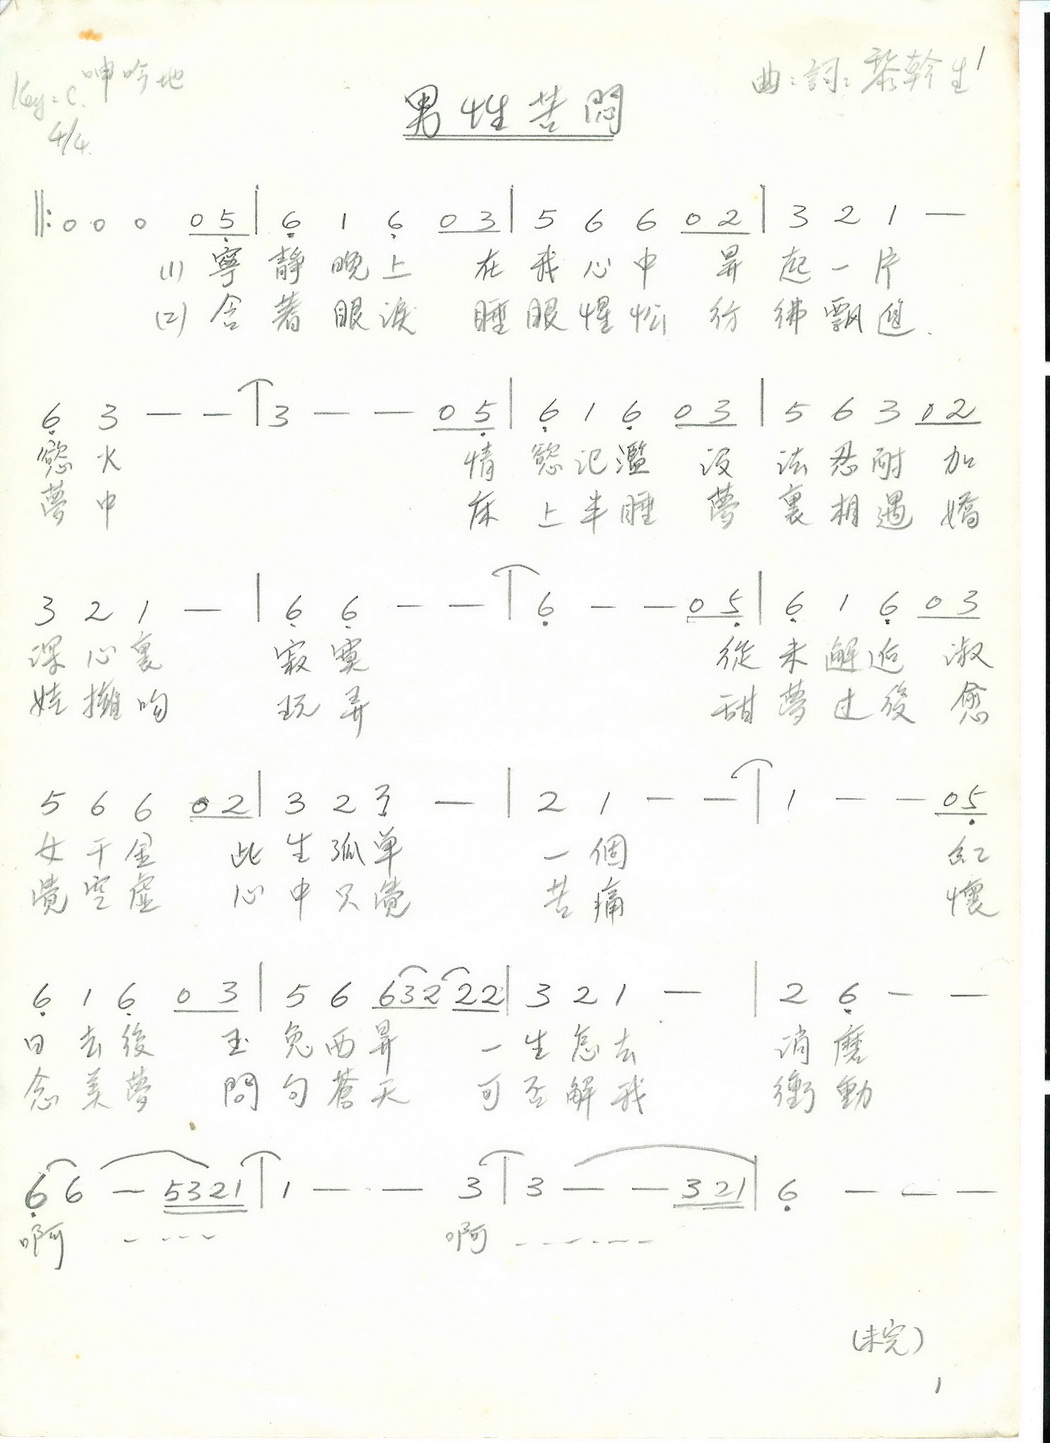 Key: C. 呻吟地
4/4
男性苦悶
曲:詞:黎幹生
1
‖: 0 0 0 0 5 | 6 1 6 0 3 | 5 6 6 0 2 | 3 2 1 —
(1) 寧靜晚上 在我心中 昇起一片
(2) 含著眼淚 睡眼惺忪 彷彿飄進
6 3 — — | 3 — — 0 5 | 6 1 6 0 3 | 5 6 3 0 2
慾火 情慾氾濫 沒法忍耐 加
夢中 床上半睡 夢裏相遇 嬌
3 2 1 — | 6 6 — — | 6 — — 0 5 | 6 1 6 0 3
深心裏 寂寞 從未邂逅 淑
娃擁吻 玩弄 甜夢过後 愈
5 6 6 0 2 | 3 2 3 — | 2 1 — — | 1 — — 0 5
女千金 此生孤單 一個 紅
覺空虛 心中只覺 苦痛 懷
6 1 6 0 3 | 5 6 632 22 | 3 2 1 — | 2 6 — —
日去後 玉兔西昇 一生怎去 消磨
念美夢 問句蒼天 可否解我 衝動
6 6 — 5321 | 1 — — 3 | 3 — — 321 | 6 — — —
啊 — - - - 啊 - - - - - -
(未完)
1